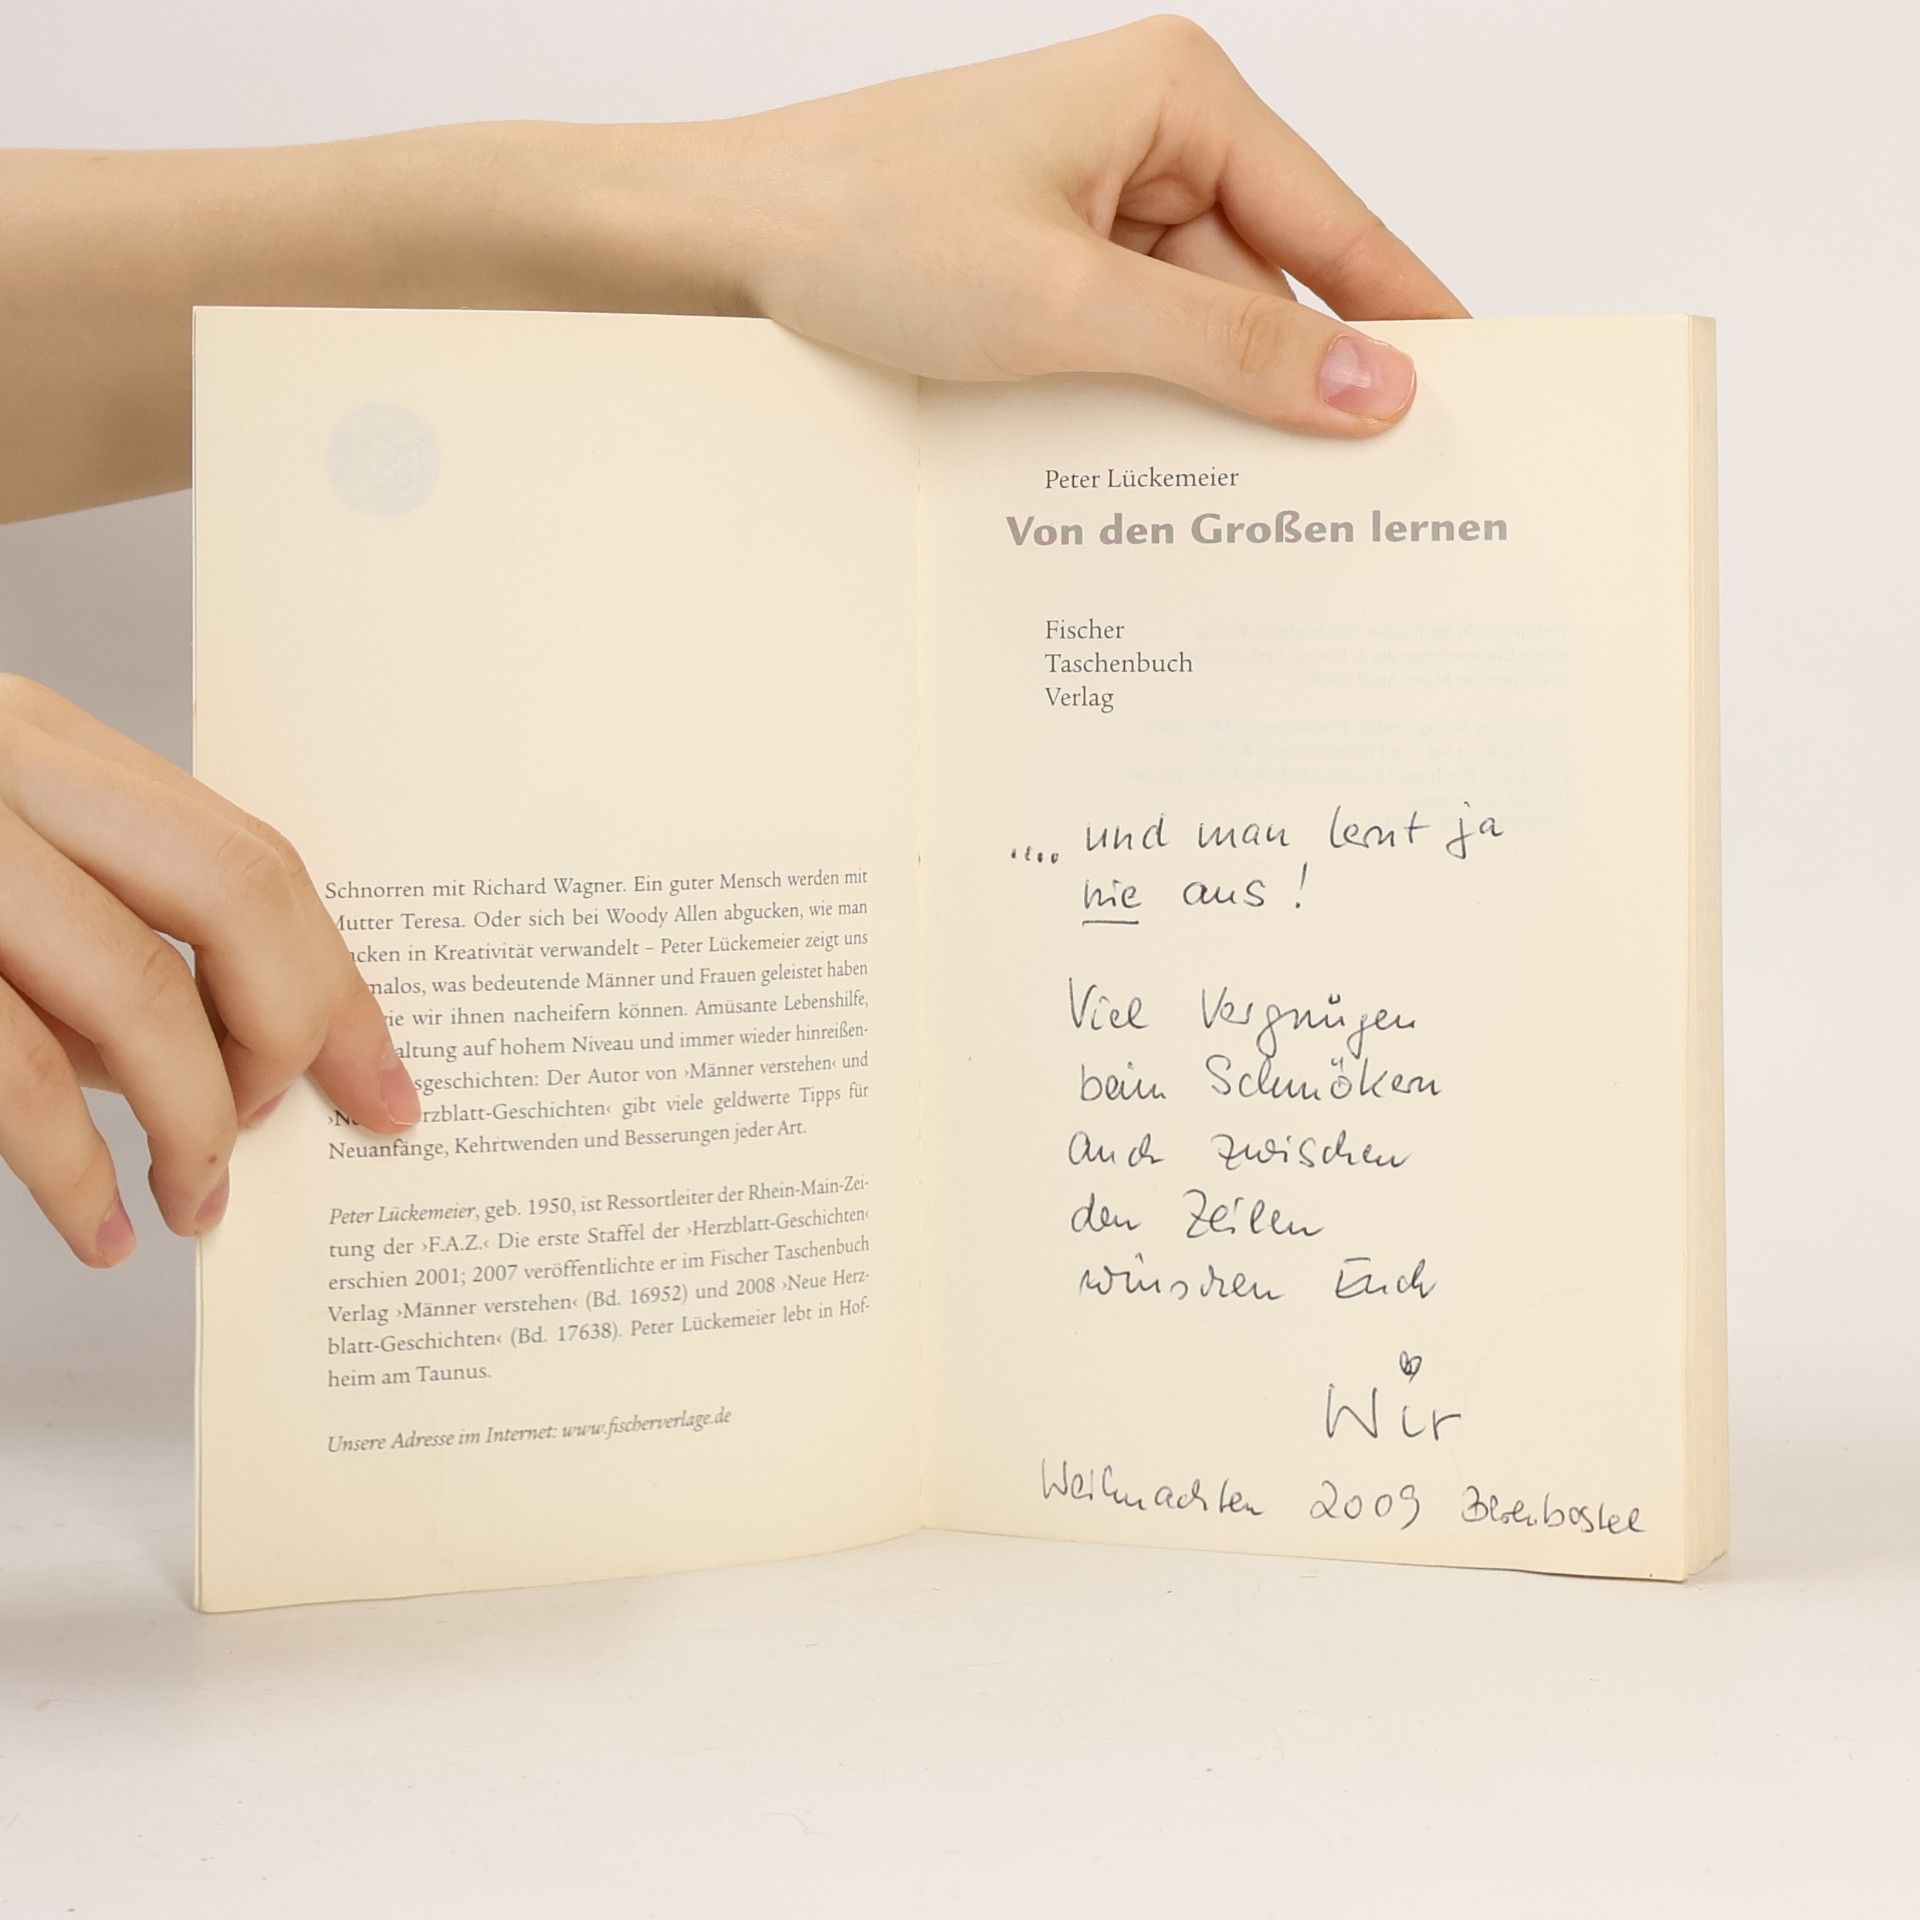 Schnorren mit Richard Wagner. Ein guter Mensch werden mit
Mutter Teresa. Oder sich bei Woody Allen abgucken, wie man
cken in Kreativität verwandelt – Peter Lückemeier zeigt uns
malos, was bedeutende Männer und Frauen geleistet haben
wir ihnen nacheifern können. Amüsante Lebenshilfe,
altung auf hohem Niveau und immer wieder hinreißen-
sgeschichten: Der Autor von ›Männer verstehen‹ und
rzblatt-Geschichten‹ gibt viele geldwerte Tipps für
Neuanfänge, Kehrtwenden und Besserungen jeder Art.
Peter Lückemeier, geb. 1950, ist Ressortleiter der Rhein-Main-Zei-
tung der ›F.A.Z.‹ Die erste Staffel der ›Herzblatt-Geschichten‹
erschien 2001; 2007 veröffentlichte er im Fischer Taschenbuch
Verlag ›Männer verstehen‹ (Bd. 16952) und 2008 ›Neue Herz-
blatt-Geschichten‹ (Bd. 17638). Peter Lückemeier lebt in Hof-
heim am Taunus.
Unsere Adresse im Internet: www.fischerverlage.de
Peter Lückemeier
Von den Großen lernen
Fischer
Taschenbuch
Verlag
.... und man lernt ja
nie aus!
Viel Vergnügen
beim Schmökern
auch zwischen
den Zeilen
wünschen Euch
Wir
Weihnachten 2009